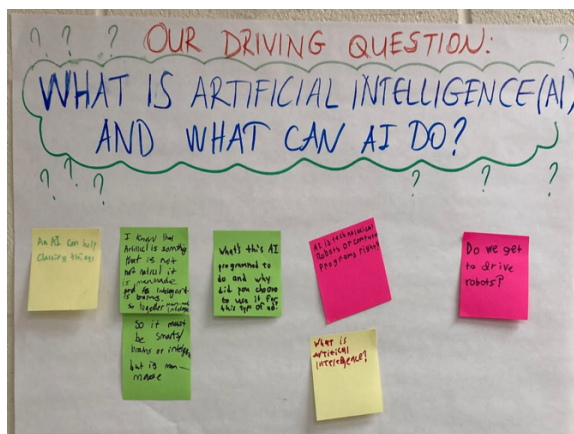 ? ? ? OUR DRIVING QUESTION: ?
WHAT IS ARTIFICIAL INTELLIGENCE(AI)
AND WHAT CAN AI DO?
? ? ? ? ? ?
An AI can help
classify things
I know that
Artificial is something
that is not
not natural it
is manmade
and
is brains.
so together
So it must
be smarts/
brains or
but is man-
made
What's this AI
programmed to
do and why
did you choose
to use it for
this type of
AI is technological
Robots or computer
programs right?
What is
artificial
intelegence?
Do we get
to drive
robots?